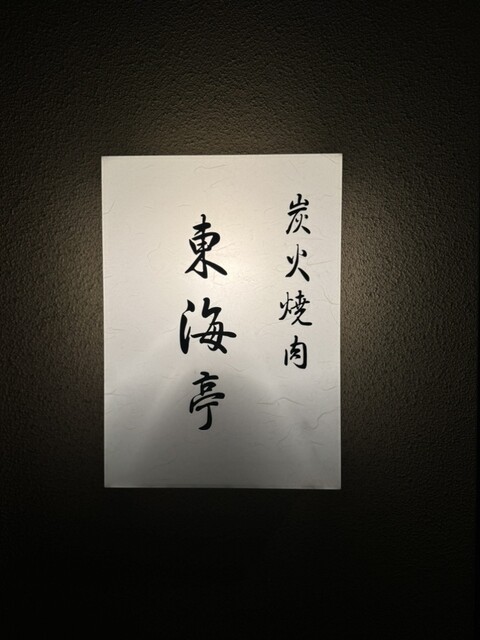 炭火焼肉
東海亭